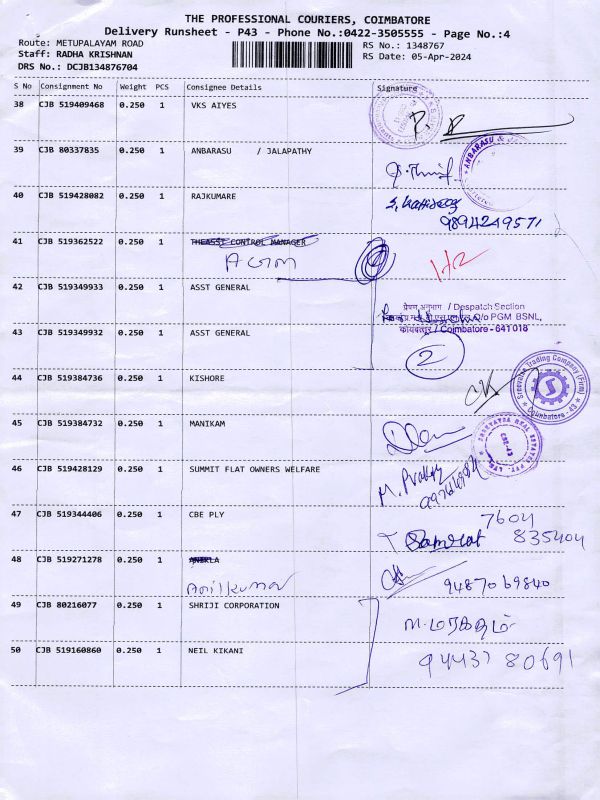 THE PROFESSIONAL COURIERS, COIMBATORE
Delivery Runsheet - P43 - Phone No.:0422-3505555 - Page No.:4
Route: METUPALAYAM ROAD
Staff: RADHA KRISHNAN
DRS No.: DCJB134876704
RS No.: 1348767
RS Date: 05-Apr-2024
S No Consignment No Weight PCS Consignee Details Signature
38 CJB 519409468 0.250 1 VKS AIYES
39 CJB 80337835 0.250 1 ANBARASU / JALAPATHY
ANBARASU &
40 CJB 519428082 0.250 1 RAJKUMARE
9894249571
41 CJB 519362522 0.250 1 THEASST CONTROL MANAGER
AGM
42 CJB 519349933 0.250 1 ASST GENERAL
प्रेषण अनुभाग / Despatch Section
O/o PGM BSNL,
कोयंबत्तूर / Coimbatore - 641 018
43 CJB 519349932 0.250 1 ASST GENERAL
2
44 CJB 519384736 0.250 1 KISHORE
Sreevatsa Trading Company (Firm)
Coimbatore - 43
45 CJB 519384732 0.250 1 MANIKAM
SREEVATSA REAL ESTATES PVT. LTD.
46 CJB 519428129 0.250 1 SUMMIT FLAT OWNERS WELFARE
47 CJB 519344406 0.250 1 CBE PLY
7604
Samrat 835404
48 CJB 519271278 0.250 1
Anilkumar
9487069840
49 CJB 80216077 0.250 1 SHRIJI CORPORATION
ம.மரகதம்
50 CJB 519160860 0.250 1 NEIL KIKANI
94437 80691